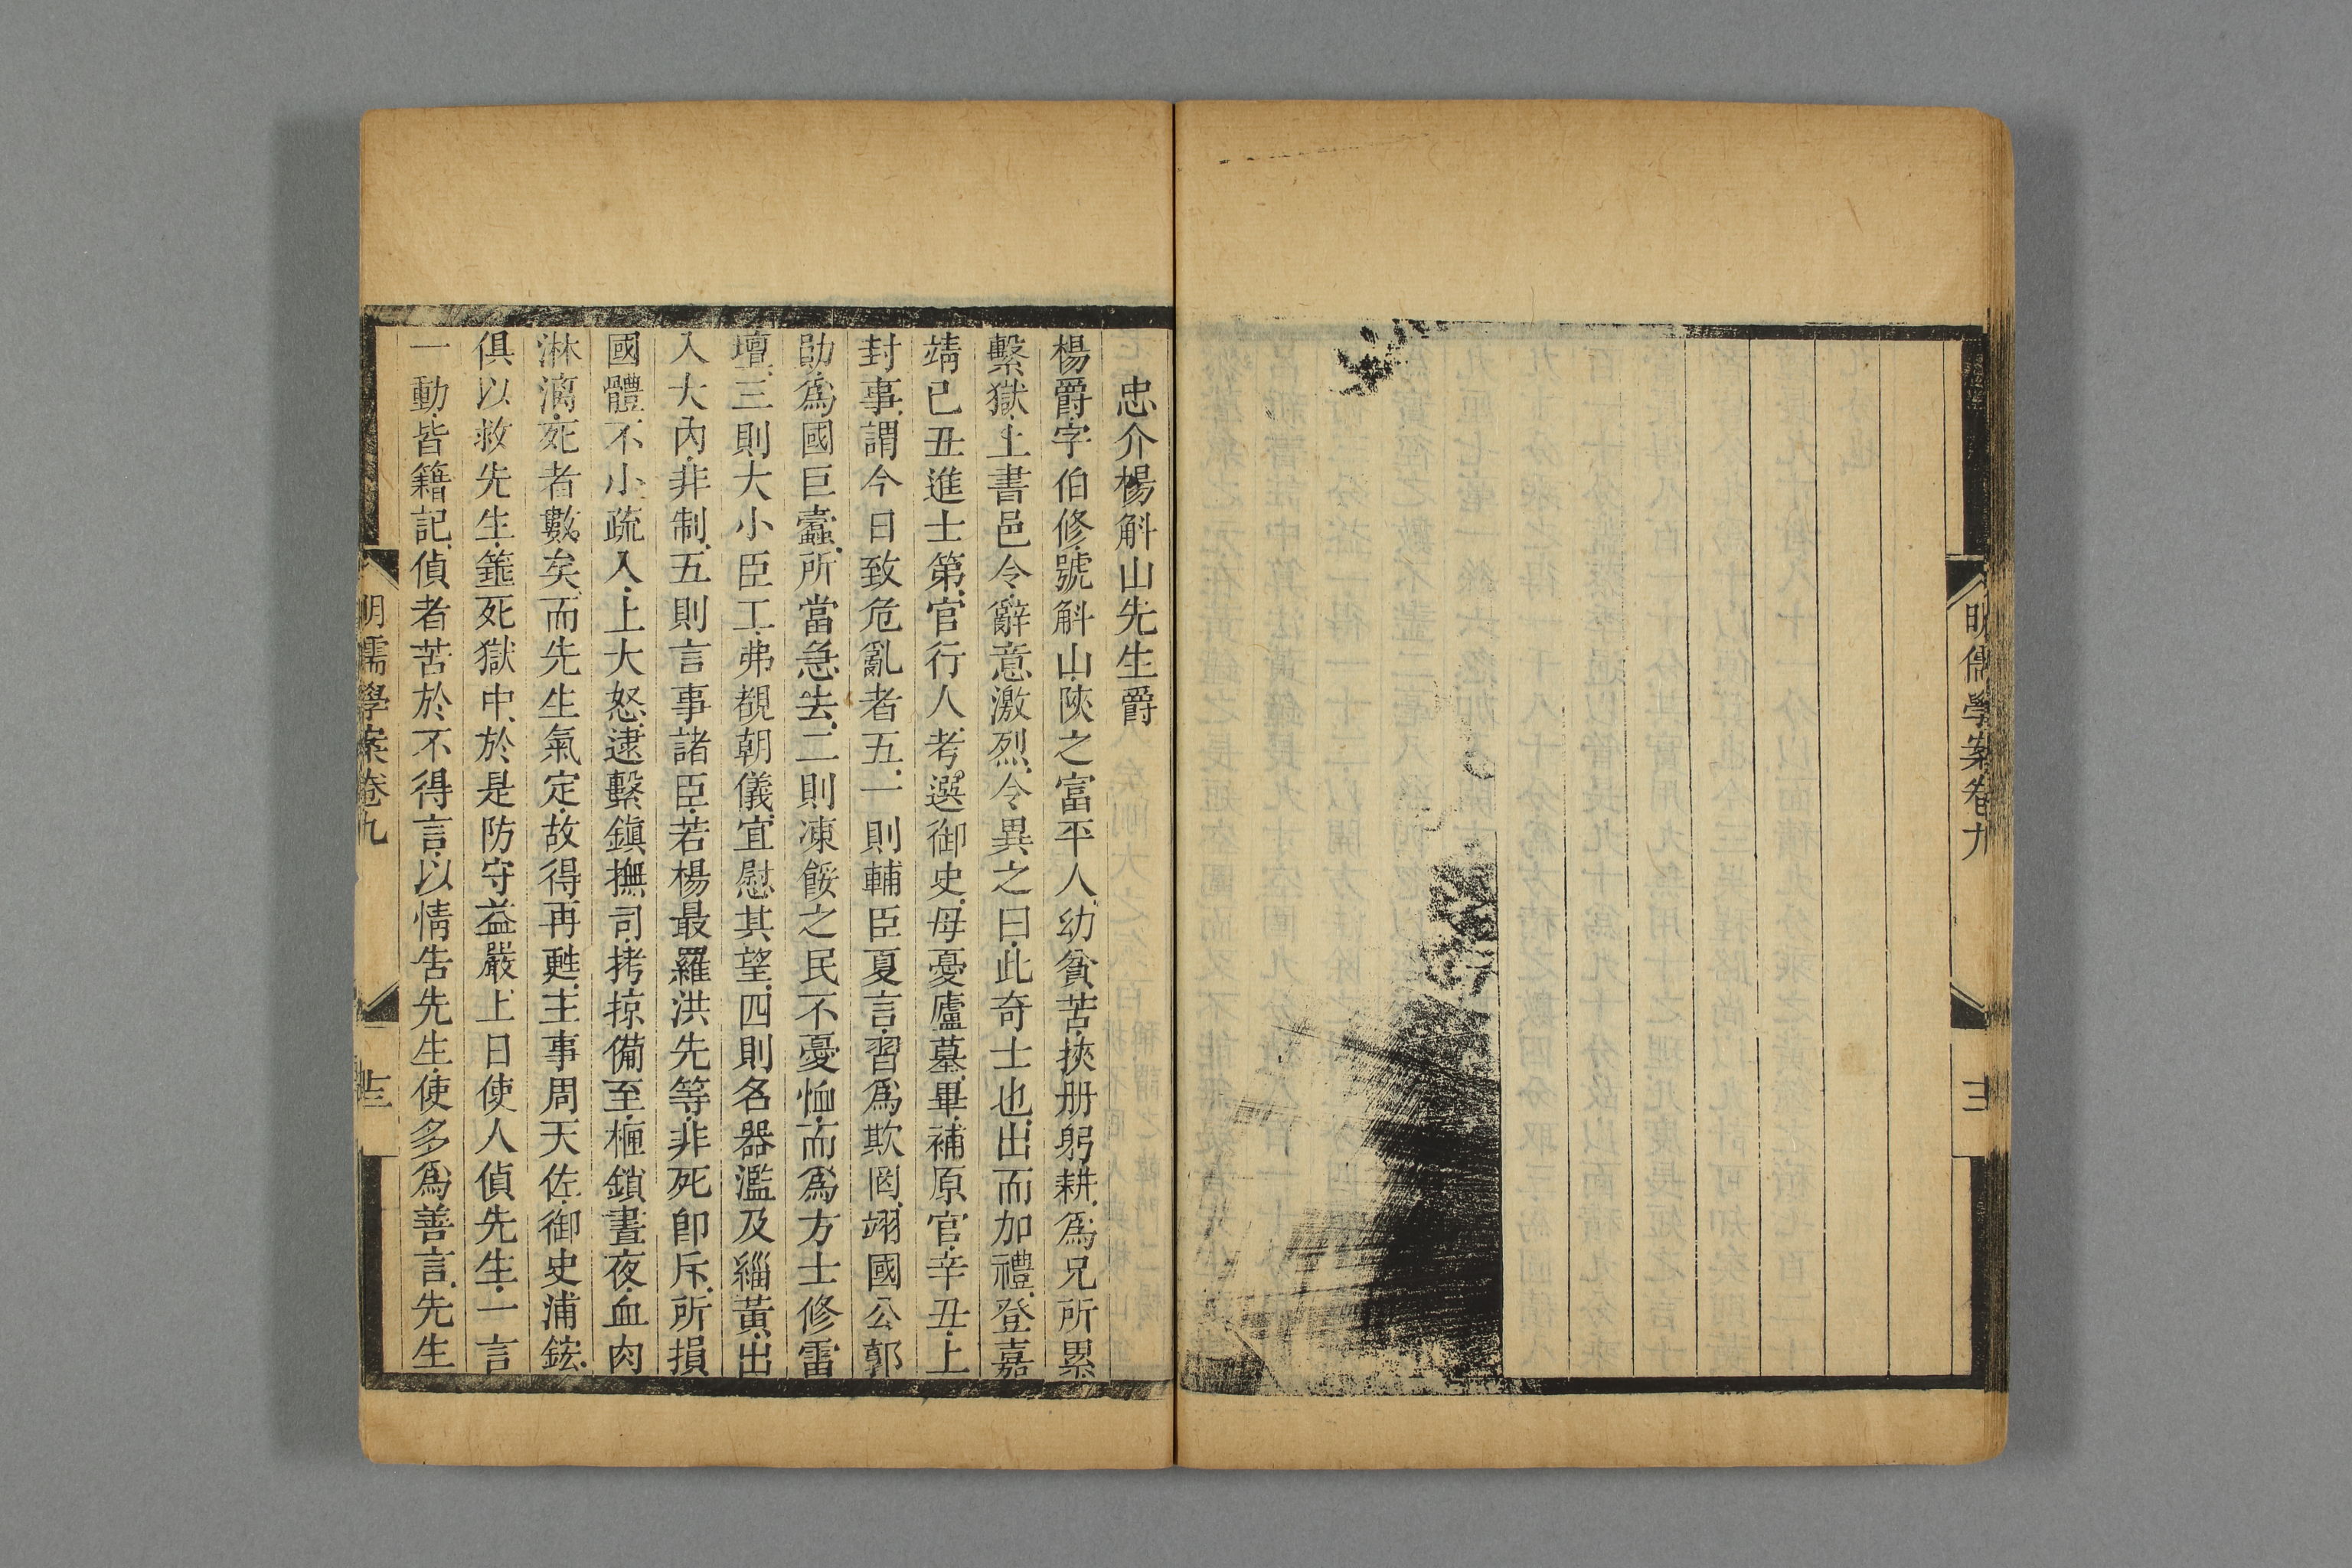 明儒學案卷九
忠介楊斛山先生爵
楊爵字伯修號斛山陝之富平人幼貧苦挾册躬耕爲兄所累
繫獄上書邑令辭意激烈令異之曰此奇士也出而加禮登嘉
靖已丑進士第官行人考選御史母憂廬墓畢補原官辛丑上
封事謂今日致危亂者五一則輔臣夏言習爲欺罔翊國公郭
勛爲國巨蠹所當急去二則凍餒之民不憂恤而爲方士修雷
壇三則大小臣工弗覩朝儀宜慰其望四則名器濫及緇黃出
入大內非制五則言事諸臣若楊最羅洪先等非死卽斥所損
國體不小疏入上大怒逮繫鎮撫司拷掠備至柙鎖晝夜血肉
淋漓死者數矣而先生氣定故得再甦主事周天佐御史浦鋐
俱以救先生箠死獄中於是防守益嚴上日使人偵先生一言
一動皆籍記偵者苦於不得言以情告先生使多爲善言先生
明儒學案卷九